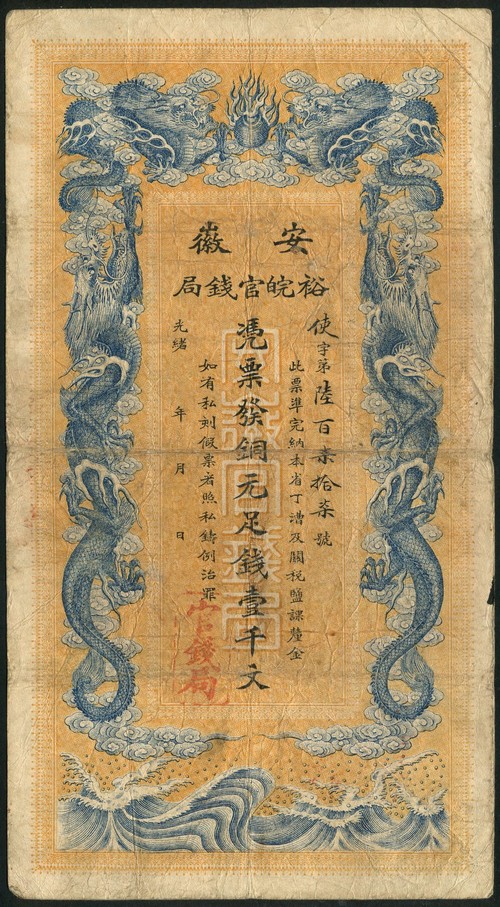 安徽
裕皖官錢局
使字第陸百柒拾柒號
此票準完納本省丁漕及關稅鹽課釐金
憑票發銅元足錢壹千文
如有私刻假票者照私鑄例治罪
光緒 年 月 日
官錢局